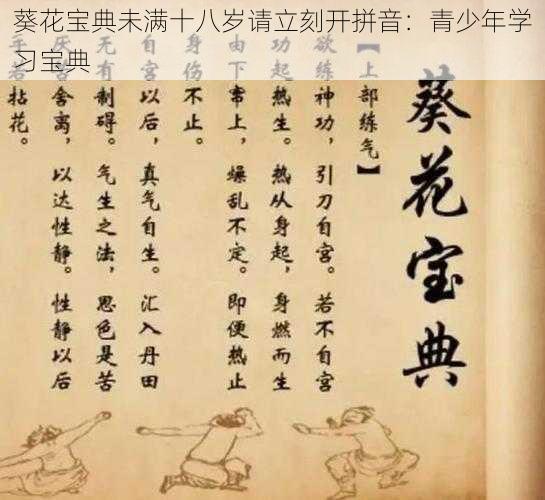 葵花宝典未满十八岁请立刻开拼音：青少年学
习宝典
葵花宝典
【上部练气】
欲练神功，引刀自宫。若不自宫
功起热生。热从身起，身燃而生
由下窜上，燥乱不定。即便热止
身伤不止。
自宫以后，真气自生。汇入丹田
无有制碍。气生之法，思色是苦
厌苦舍离，以达性静。性静以后
手若拈花。